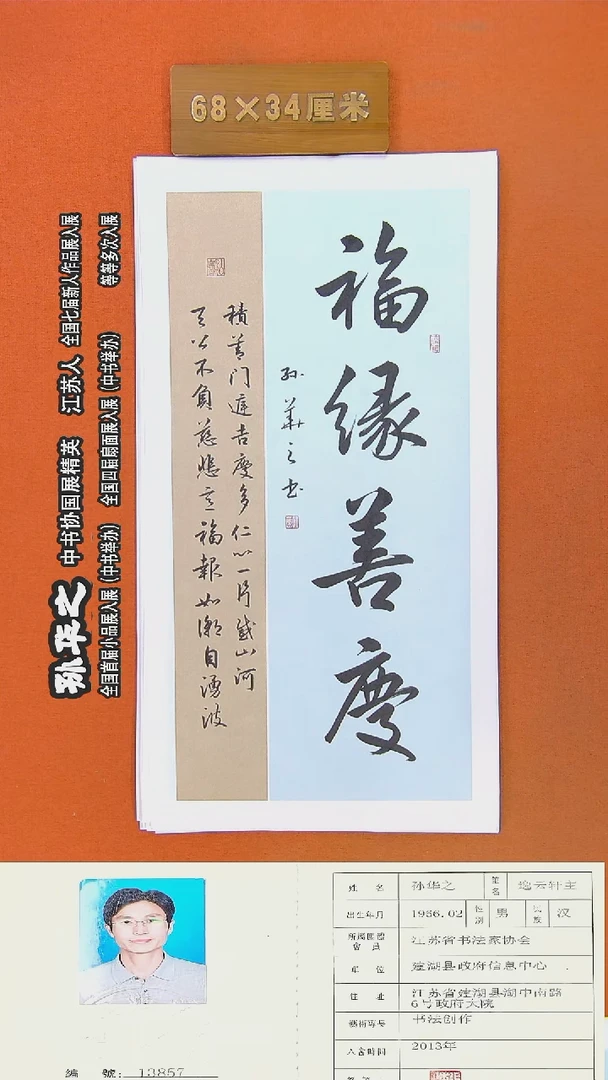 68×34厘米
孙华之 中书协国展精英 江苏人 全国七届新人作品展入展
全国首届小品展入展(中书举办) 全国四届扇面展入展(中书举办) 等等多次入展
福缘善慶
孙華之书
積善门庭吉慶多仁心一片感山河
天公不負慈悲意福報如潮自湧波
姓 名 孙华之 笔名 逸云轩主
出生年月 1956.02 性别 男 民族 汉
會員 江苏省书法家协会
单 位 建湖县政府信息中心
住 址 江苏省建湖县湖中南路
6号政府大院
书法创作
入會時間 2013年
编 號: 13857